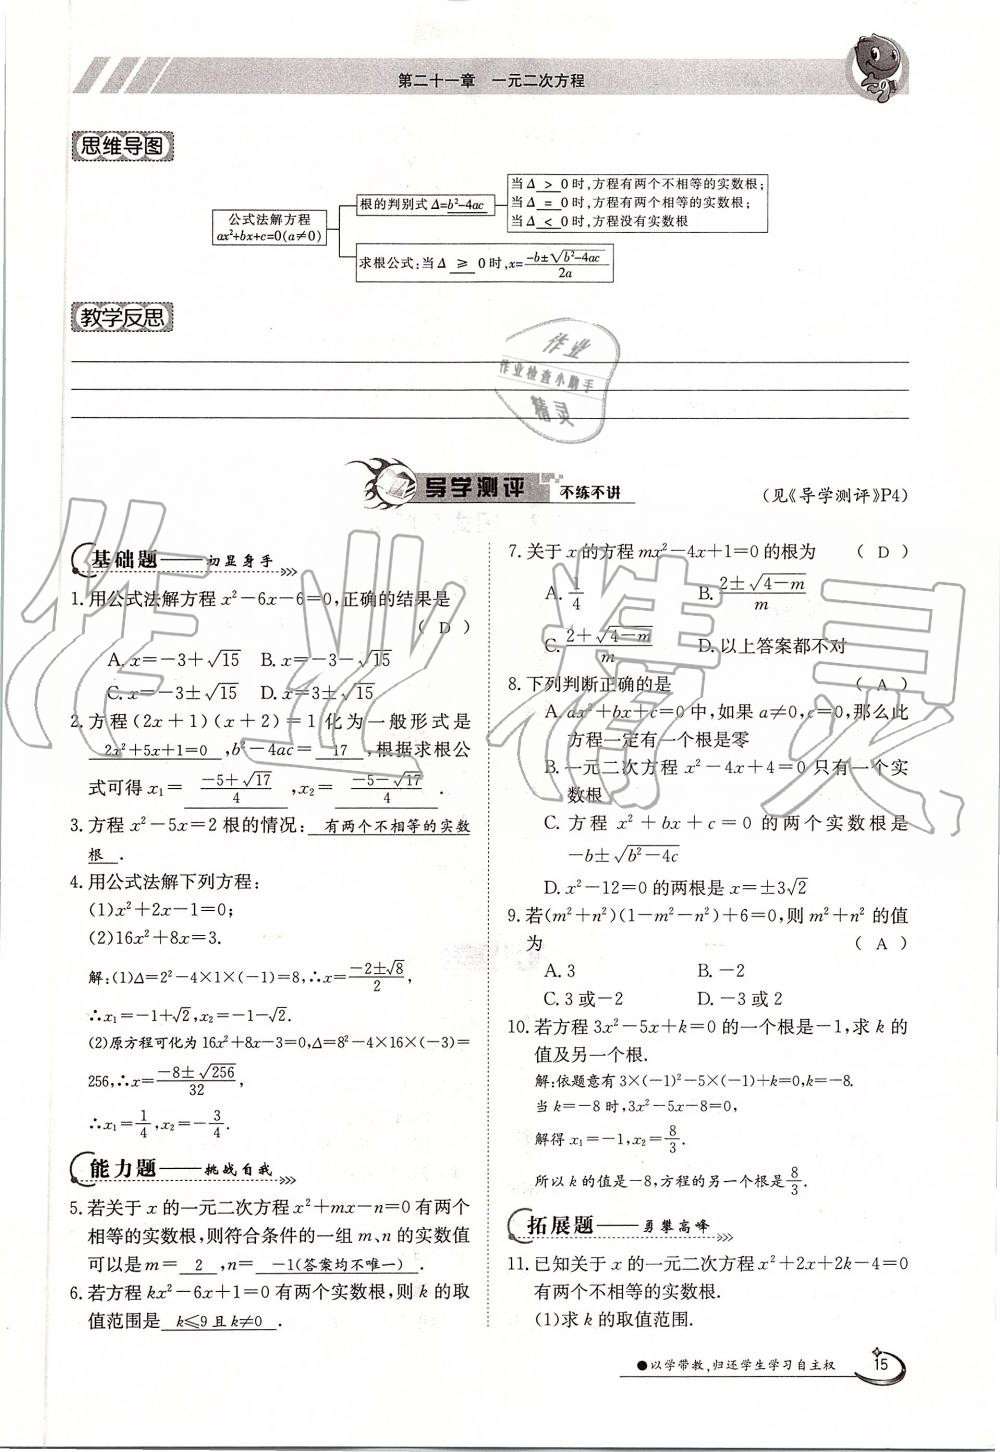 第二十一章　一元二次方程
思维导图
公式法解方程
ax²+bx+c=0(a≠0)
根的判别式Δ=b²-4ac
当Δ > 0时,方程有两个不相等的实数根;
当Δ = 0时,方程有两个相等的实数根;
当Δ < 0时,方程没有实数根
求根公式:当Δ ≥ 0时,x=(-b±√(b²-4ac))/2a
教学反思
作业
作业检查小助手
精灵
导学测评 不练不讲
(见《导学测评》P4)
基础题——初显身手
1.用公式法解方程 x²-6x-6=0,正确的结果是
( D )
A.x=-3+√15　B.x=-3-√15
C.x=-3±√15　D.x=3±√15
2.方程(2x+1)(x+2)=1化为一般形式是
2x²+5x+1=0 ,b²-4ac= 17 ,根据求根公
式可得 x₁= (-5+√17)/4 ,x₂= (-5-√17)/4 .
3.方程 x²-5x=2 根的情况: 有两个不相等的实数
根 .
4.用公式法解下列方程:
(1)x²+2x-1=0;
(2)16x²+8x=3.
解:(1)Δ=2²-4×1×(-1)=8,∴x=(-2±√8)/2,
∴x₁=-1+√2,x₂=-1-√2.
(2)原方程可化为 16x²+8x-3=0,Δ=8²-4×16×(-3)=
256,∴x=(-8±√256)/32,
∴x₁=1/4,x₂=-3/4.
能力题——挑战自我
5.若关于 x 的一元二次方程 x²+mx-n=0 有两个
相等的实数根,则符合条件的一组 m、n 的实数值
可以是 m= 2 ,n= -1(答案均不唯一) .
6.若方程 kx²-6x+1=0 有两个实数根,则 k 的取
值范围是 k≤9且k≠0 .
7.关于 x 的方程 mx²-4x+1=0 的根为　( D )
A.1/4　B.(2±√(4-m))/m
C.(2+√(4-m))/m　D.以上答案都不对
8.下列判断正确的是　( A )
A.ax²+bx+c=0中,如果 a≠0,c=0,那么此
方程一定有一个根是零
B.一元二次方程 x²-4x+4=0 只有一个实
数根
C.方程 x²+bx+c=0 的两个实数根是
-b±√(b²-4c)
D.x²-12=0 的两根是 x=±3√2
9.若(m²+n²)(1-m²-n²)+6=0,则 m²+n² 的值
为　( A )
A.3　B.-2
C.3或-2　D.-3或2
10.若方程 3x²-5x+k=0 的一个根是-1,求 k 的
值及另一个根.
解:依题意有3×(-1)²-5×(-1)+k=0,k=-8.
当 k=-8 时,3x²-5x-8=0,
解得 x₁=-1,x₂=8/3.
所以 k 的值是-8,方程的另一个根是8/3.
拓展题——勇攀高峰
11.已知关于 x 的一元二次方程 x²+2x+2k-4=0
有两个不相等的实数根.
(1)求 k 的取值范围.
●以学带教,归还学生学习自主权
15
作业精灵